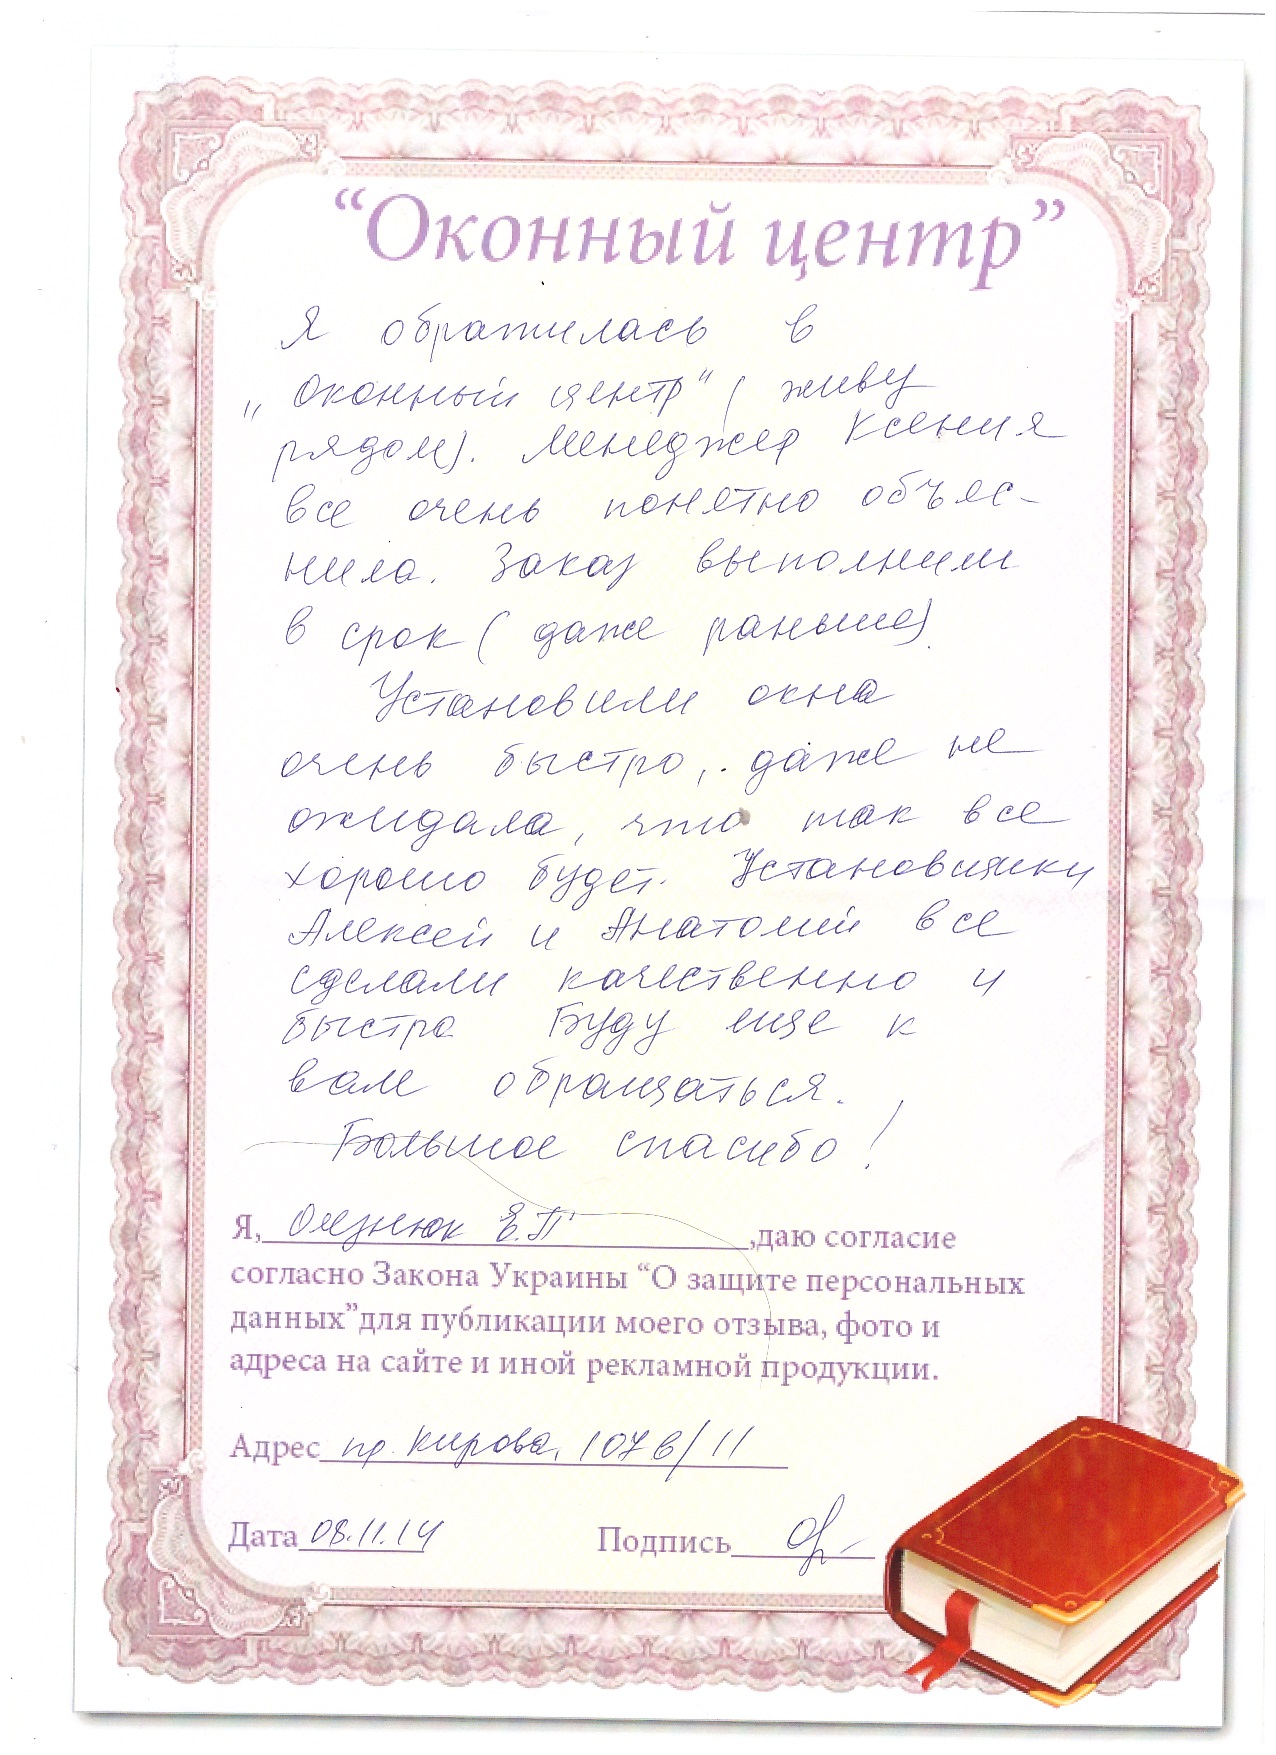 “Оконный центр”
Я обратилась в
„Оконный центр" (живу
рядом). Менеджер Ксения
все очень понятно объяс-
нила. Заказ выполнили
в срок (даже раньше).
Установили окна
очень быстро, даже не
ожидала, что так все
хорошо будет. Установщики
Алексей и Анатолий все
сделали качественно и
быстро Буду еще к
вам обращаться.
Большое спасибо!
Я, Е.П ,даю согласие
согласно Закона Украины “О защите персональных
данных”для публикации моего отзыва, фото и
адреса на сайте и иной рекламной продукции.
Адрес пр. Кирова, 107в/11
Дата 08.11.14 Подпись